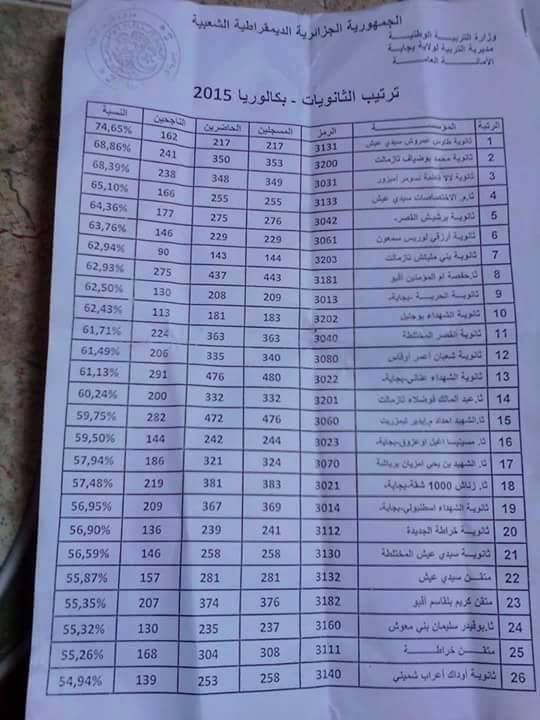 الجمهورية الجزائرية الديمقراطية الشعبية
وزارة التربية الوطنية
مديرية التربية لولاية بجاية
الأمانة العامة
ترتيب الثانويات - بكالوريا 2015
الرتبة المؤسسة الرمز المسجلين الحاضرين الناجحين النسبة
1 ثانوية طاوس عمروش سيدي عيش 3131 217 217 162 74,65%
2 ثانوية محمد بوضياف تازمالت 3200 353 350 241 68,86%
3 ثانوية لالا فاطمة نسومر اميزور 3031 349 348 238 68,39%
4 ثا.م. الاختصاصات سيدي عيش 3133 255 255 166 65,10%
5 ثانوية برشيش القصر 3042 276 275 177 64,36%
6 ثانوية ارزقي لوريس سمعون 3061 229 229 146 63,76%
7 ثانوية بني مليكش تازمالت 3203 144 143 90 62,94%
8 ثا. حفصة ام المؤمنين أقبو 3181 443 437 275 62,93%
9 ثانوية الحرية -بجاية- 3013 209 208 130 62,50%
10 ثانوية الشهداء بوجليل 3202 183 181 113 62,43%
11 ثانوية القصر المختلطة 3040 363 363 224 61,71%
12 ثانوية شعبان أعمر أوقاس 3080 340 335 206 61,49%
13 ثانوية الشهداء عناني-بجاية- 3022 480 476 291 61,13%
14 ثا. عبد المالك فوضلاء تازمالت 3201 332 332 200 60,24%
15 ثا.الشهيد احداد م.ايدير تيمزريت 3060 476 472 282 59,75%
16 ثا. مسينيسا اغيل اوعزوق-بجاية- 3023 244 242 144 59,50%
17 ثا. الشهيد بن يحي امزيان برباشة 3070 324 321 186 57,94%
18 ثا. زناش 1000 شقة-بجاية- 3021 383 381 219 57,48%
19 ثانوية الشهداء اسطنبولي-بجاية- 3014 369 367 209 56,95%
20 ثانوية خراطة الجديدة 3112 241 239 136 56,90%
21 ثانوية سيدي عيش المختلطة 3130 258 258 146 56,59%
22 متقن سيدي عيش 3132 281 281 157 55,87%
23 متقن كريم بلقاسم أقبو 3182 376 374 207 55,35%
24 ثا.بوقيدر سليمان بني معوش 3160 237 235 130 55,32%
25 متقن خراطة 3111 308 304 168 55,26%
26 ثانوية أوداك أعراب شميني 3140 258 253 139 54,94%